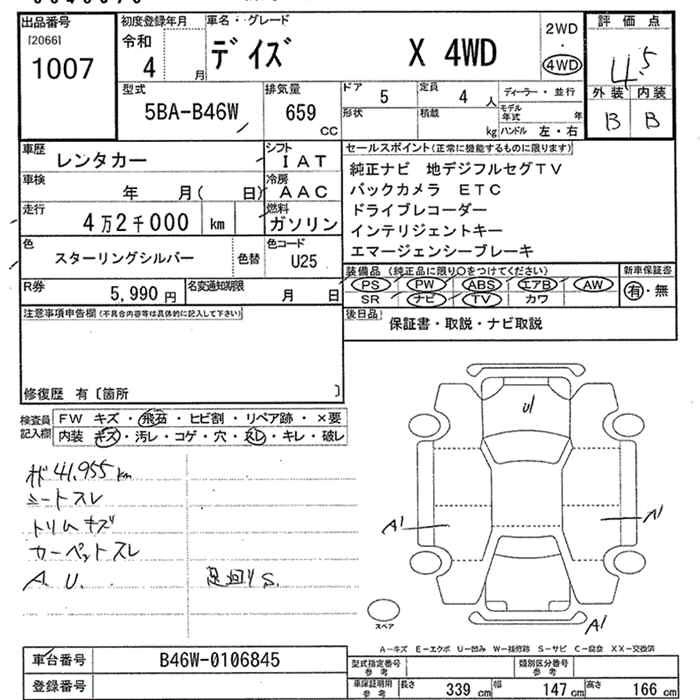 出品番号
[2066]
1007
初度登録年月
令和
4 月
車名・グレード
デイズ X 4WD
2WD
・
4WD
評価点
4.5
外装 内装
B B
型式
5BA-B46W
排気量
659 CC
ドア 5
定員 4 人
形状
積載 kg
ディーラー・並行
モデル年式 年
ハンドル 左・右
車歴 レンタカー
シフト IAT
車検 年 月( 日)
冷房 AAC
走行 4万2千000 km
燃料 ガソリン
色 スターリングシルバー 色替
色コード U25
R券 5,990 円
名変通知期限 月 日
セールスポイント(正常に機能するものに限ります)
純正ナビ 地デジフルセグTV
バックカメラ ETC
ドライブレコーダー
インテリジェントキー
エマージェンシーブレーキ
装備品(純正品に限り○をつけてください)
PS PW ABS エアB AW
SR ナビ TV カワ
新車保証書
有・無
後日品 保証書・取説・ナビ取説
注意事項申告欄(不具合内容等は具体的に記入して下さい)
修復歴 有〔箇所 〕
検査員記入欄
FW キズ・飛石・ヒビ割・リペア跡・×要
内装 キズ・汚レ・コゲ・穴・スレ・キレ・破レ
41,955 km
シートスレ
トリムキズ
カーペットスレ
A U.
足回りS.
U1
A1
A1
A1
スペア
A-キズ E-エクボ U-凹み W-補修跡 S-サビ C-腐食 XX-交換済
車台番号 B46W-0106845
登録番号
型式指定番号参考
類別区分番号参考
車保証明用参考 長さ 339 cm 幅 147 cm 高さ 166 cm